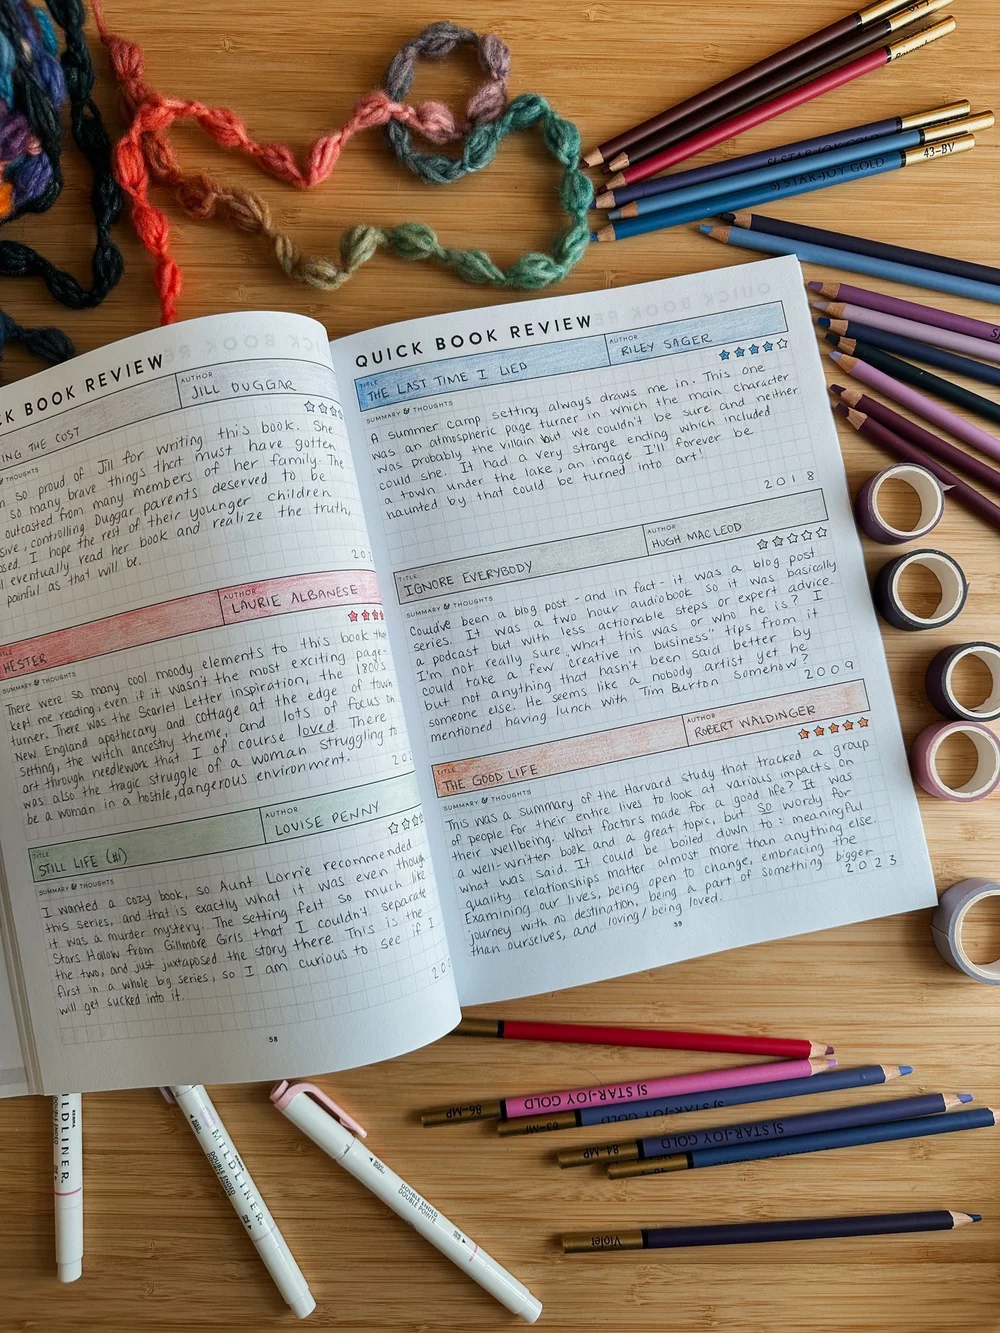 CK BOOK REVIEW
AUTHOR
JILL DUGGAR
ING THE COST
THOUGHTS
so proud of Jill for writing this book. She
so many brave things that must have gotten
outcasted from many members of her family. The
sive, controlling Duggar parents deserved to be
sed. I hope the rest of their younger children
eventually read her book and realize the truth,
painful as that will be.
202
TITLE
HESTER
AUTHOR
LAURIE ALBANESE
SUMMARY & THOUGHTS
There were so many cool moody elements to this book that
kept me reading, even if it wasn't the most exciting page-
turner. There was the Scarlet Letter inspiration, the 1800's
New England apothecary and cottage at the edge of town
setting, the witch ancestry theme, and lots of focus on
art through needlework that I of course loved. There
was also the tragic struggle of a woman struggling to
be a woman in a hostile, dangerous environment.
202
TITLE
STILL LIFE (#1)
AUTHOR
LOUISE PENNY
SUMMARY & THOUGHTS
I wanted a cozy book, so Aunt Lorrie recommended
this series, and that is exactly what it was even though
it was a murder mystery. The setting felt so much like
Stars Hollow from Gillmore Girls that I couldn't separate
the two, and just juxtaposed the story there. This is the
first in a whole big series, so I am curious to see if I
will get sucked into it.
20
58
QUICK BOOK REVIEW
TITLE
THE LAST TIME I LIED
AUTHOR
RILEY SAGER
SUMMARY & THOUGHTS
A summer camp setting always draws me in. This one
was an atmospheric page turner in which the main character
was probably the villain but we couldn't be sure and neither
could she. It had a very strange ending which included
a town under the lake, an image I'll forever be
haunted by that could be turned into art!
2018
TITLE
IGNORE EVERYBODY
AUTHOR
HUGH MACLEOD
SUMMARY & THOUGHTS
Could've been a blog post - and in fact - it was a blog post
series. It was a two hour audiobook so it was basically
a podcast but with less actionable steps or expert advice.
I'm not really sure what this was or who he is? I
could take a few "creative in business" tips from it
but not anything that hasn't been said better by
someone else. He seems like a nobody artist yet he
mentioned having lunch with Tim Burton somehow?
2009
TITLE
THE GOOD LIFE
AUTHOR
ROBERT WALDINGER
SUMMARY & THOUGHTS
This was a summary of the Harvard study that tracked a group
of people for their entire lives to look at various impacts on
their wellbeing. What factors made for a good life? It was
a well-written book and a great topic, but so wordy for
what was said. It could be boiled down to: meaningful
quality relationships matter almost more than anything else.
Examining our lives, being open to change, embracing the
journey with no destination, being a part of something bigger
than ourselves, and loving/being loved.
2023
59
SJ STAR-JOY GOLD
SJ STAR-JOY GOLD
43-BV
86-MP SJ STAR-JOY GOLD
63-MP SJ STAR-JOY GOLD
84-MP SJ STAR-JOY GOLD
Violet
ZEBRA
MILDLINER
DOUBLE ENDED
MILDLINER
DOUBLE ENDED
DOUBLE ENDED
DOUBLE POINTE